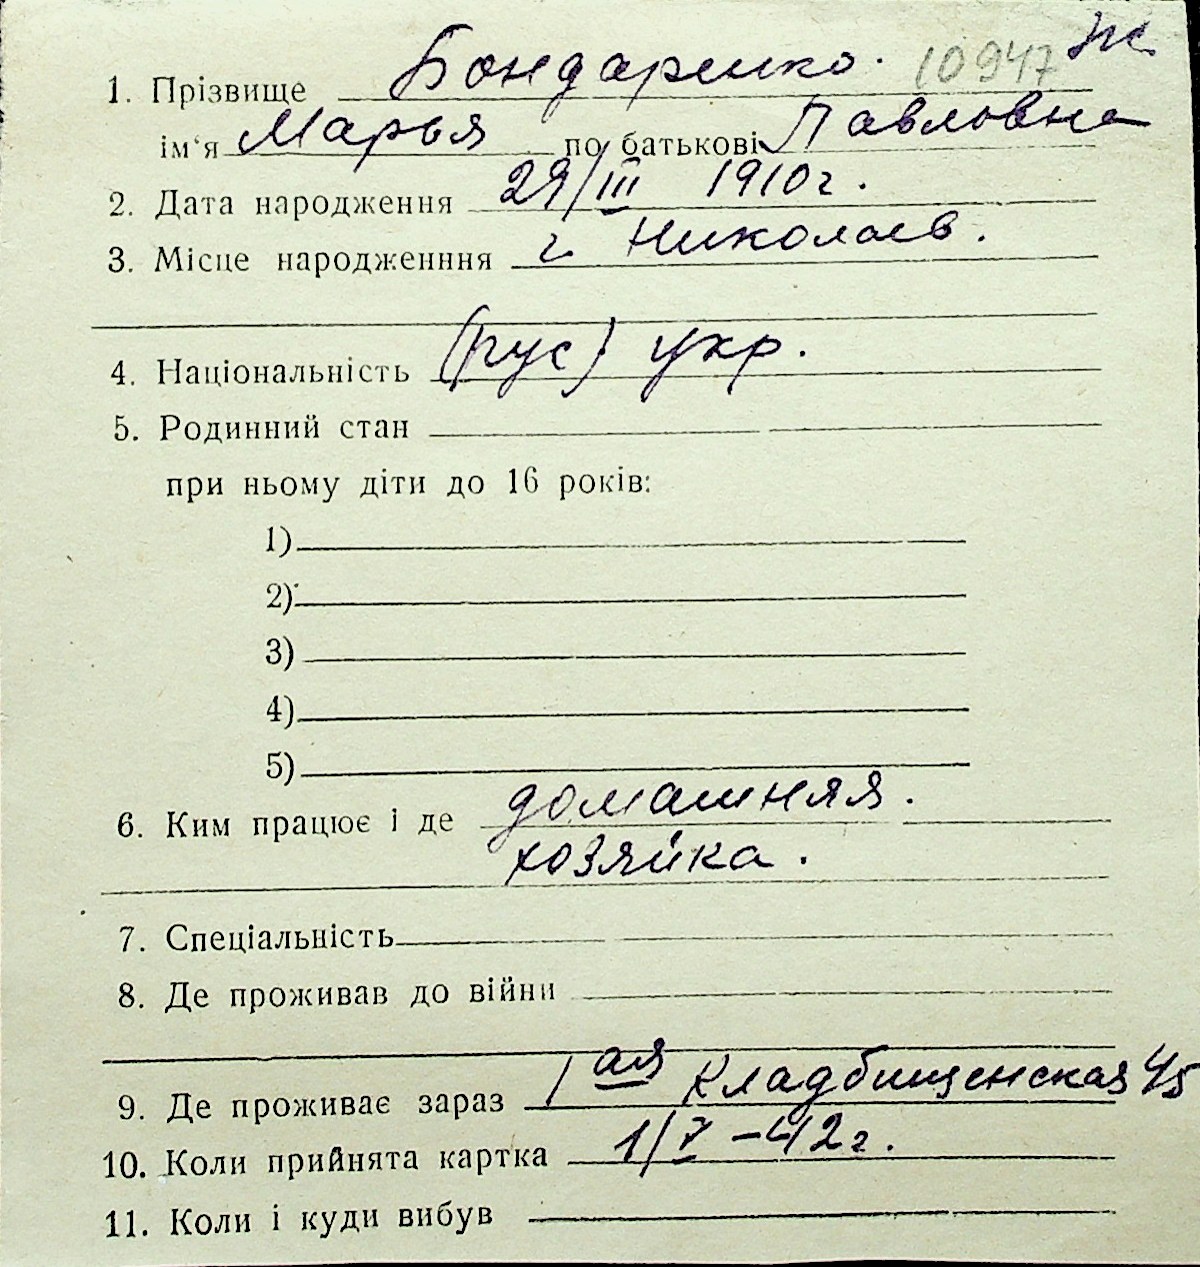 1. Прізвище Бондаренко. 10947 Ж
ім'я Марья по батькові Павловна
2. Дата народження 29/III 1910г.
3. Місце народженння г. Николаев.
4. Національність (рус) укр.
5. Родинний стан
при ньому діти до 16 років:
1)
2)
3)
4)
5)
6. Ким працює і де домашняя.
хозяйка.
7. Спеціальність
8. Де проживав до війни
9. Де проживає зараз 1ая Кладбищенская 45
10. Коли прийнята картка 1/V-42г.
11. Коли і куди вибув